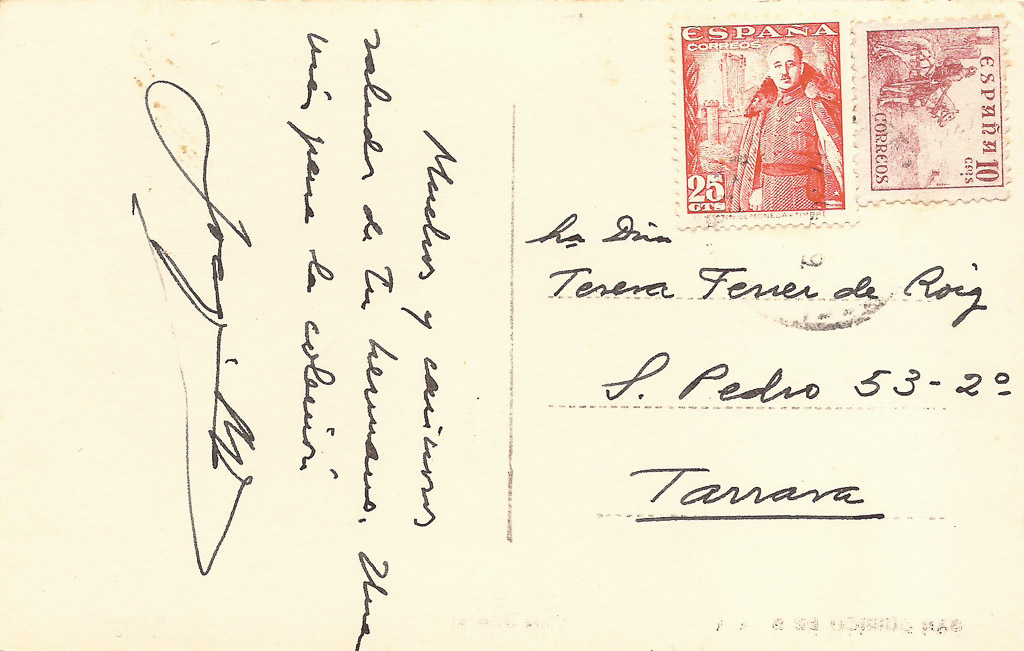 Muchos y cariñosos
saludos de Tu hermano. Una
más para la colección
Joaquin
ESPAÑA
CORREOS
25
CTS
ESPAÑA
10
CTS
CORREOS
Teresa Ferrer de Roig
S. Pedro 53-2º
Tarrasa